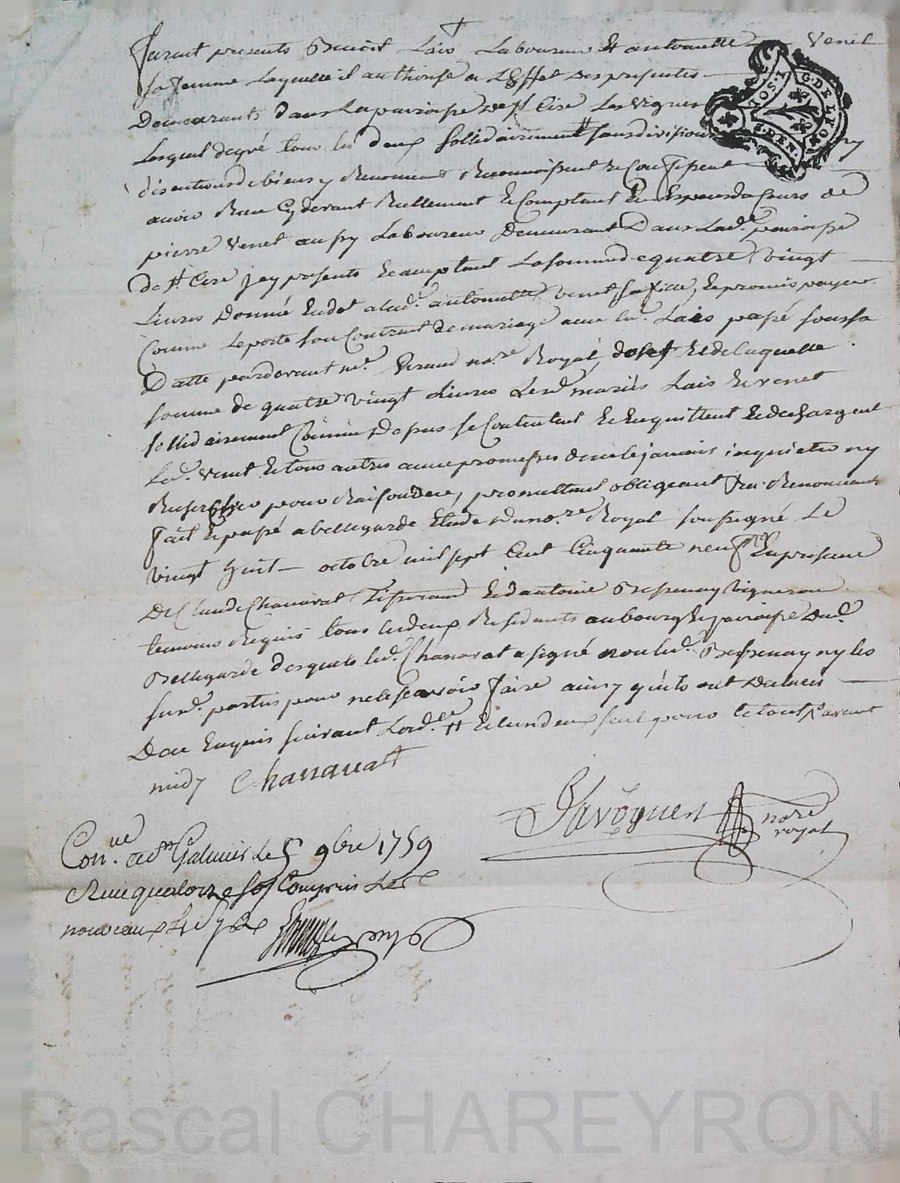 furent presents Benoit Lais Laboureur Et antoinette Venet
sa femme Laquelle il authorise a L'Effet des presentes
Demeurants dans La paroisse de st Cire Les Vignes
Lesquels de gré tous les deux sollidairement sans division ny
discutions de biens y Renoncant Reconnoissent et Confessent
avoir Reçu cy devant Reellement Et Comptant En Especes du Cours de
pierre Venet au fry Laboureur Demeurant Dans Lad.e paroisse
de st Cire icy present Et acceptant La somme de quatre vingt
Livres Donnée En dot a lad.e antoinette Venet sa fille, Et promis payer
Comme Le porte son Contrat de mariage avec led. Lais passé sous sa
Datte pardevant m.e no.re Royal, dosst Et de laquelle
somme de quatre vingt Livres Lesd. mariés Lais Et venet
sollidairement Comme Dessus se Contentent Et En quittent Et dechargent
Led. venet Et tous autres avec promesses de ne le jamais inquieter ny
Rechercher pour Raison de ce, promettant obligeant &a. Renonceant
fait Et passé a bellegarde Etude du no.re Royal soussigné Le
vingt huit octobre mil sept Cent Cinquante neuf En presence
De Claude Chanavat Tisserand Et d'antoine Bessenay vigneron
temoins Requis tous les deux Residants au bourg Et paroisse dud.
Bellegarde desquels led. Chanavat a signé non led. Bessenay ny les
susd. parties pour ne le scavoir faire ainsy qu'ils ont Declaré
De ce Enquis suivant Lord.ce # Et lun deux seul pour le tout avant
midy Chanavat
Javoguen no.re
royal
Con.lé a st Galmier le 5 9bre 1759
Reçu quatorze sos Compris Les
nouveaux 4 s
G. DE LION
1 SOL
DEN.
Pascal CHAREYRON